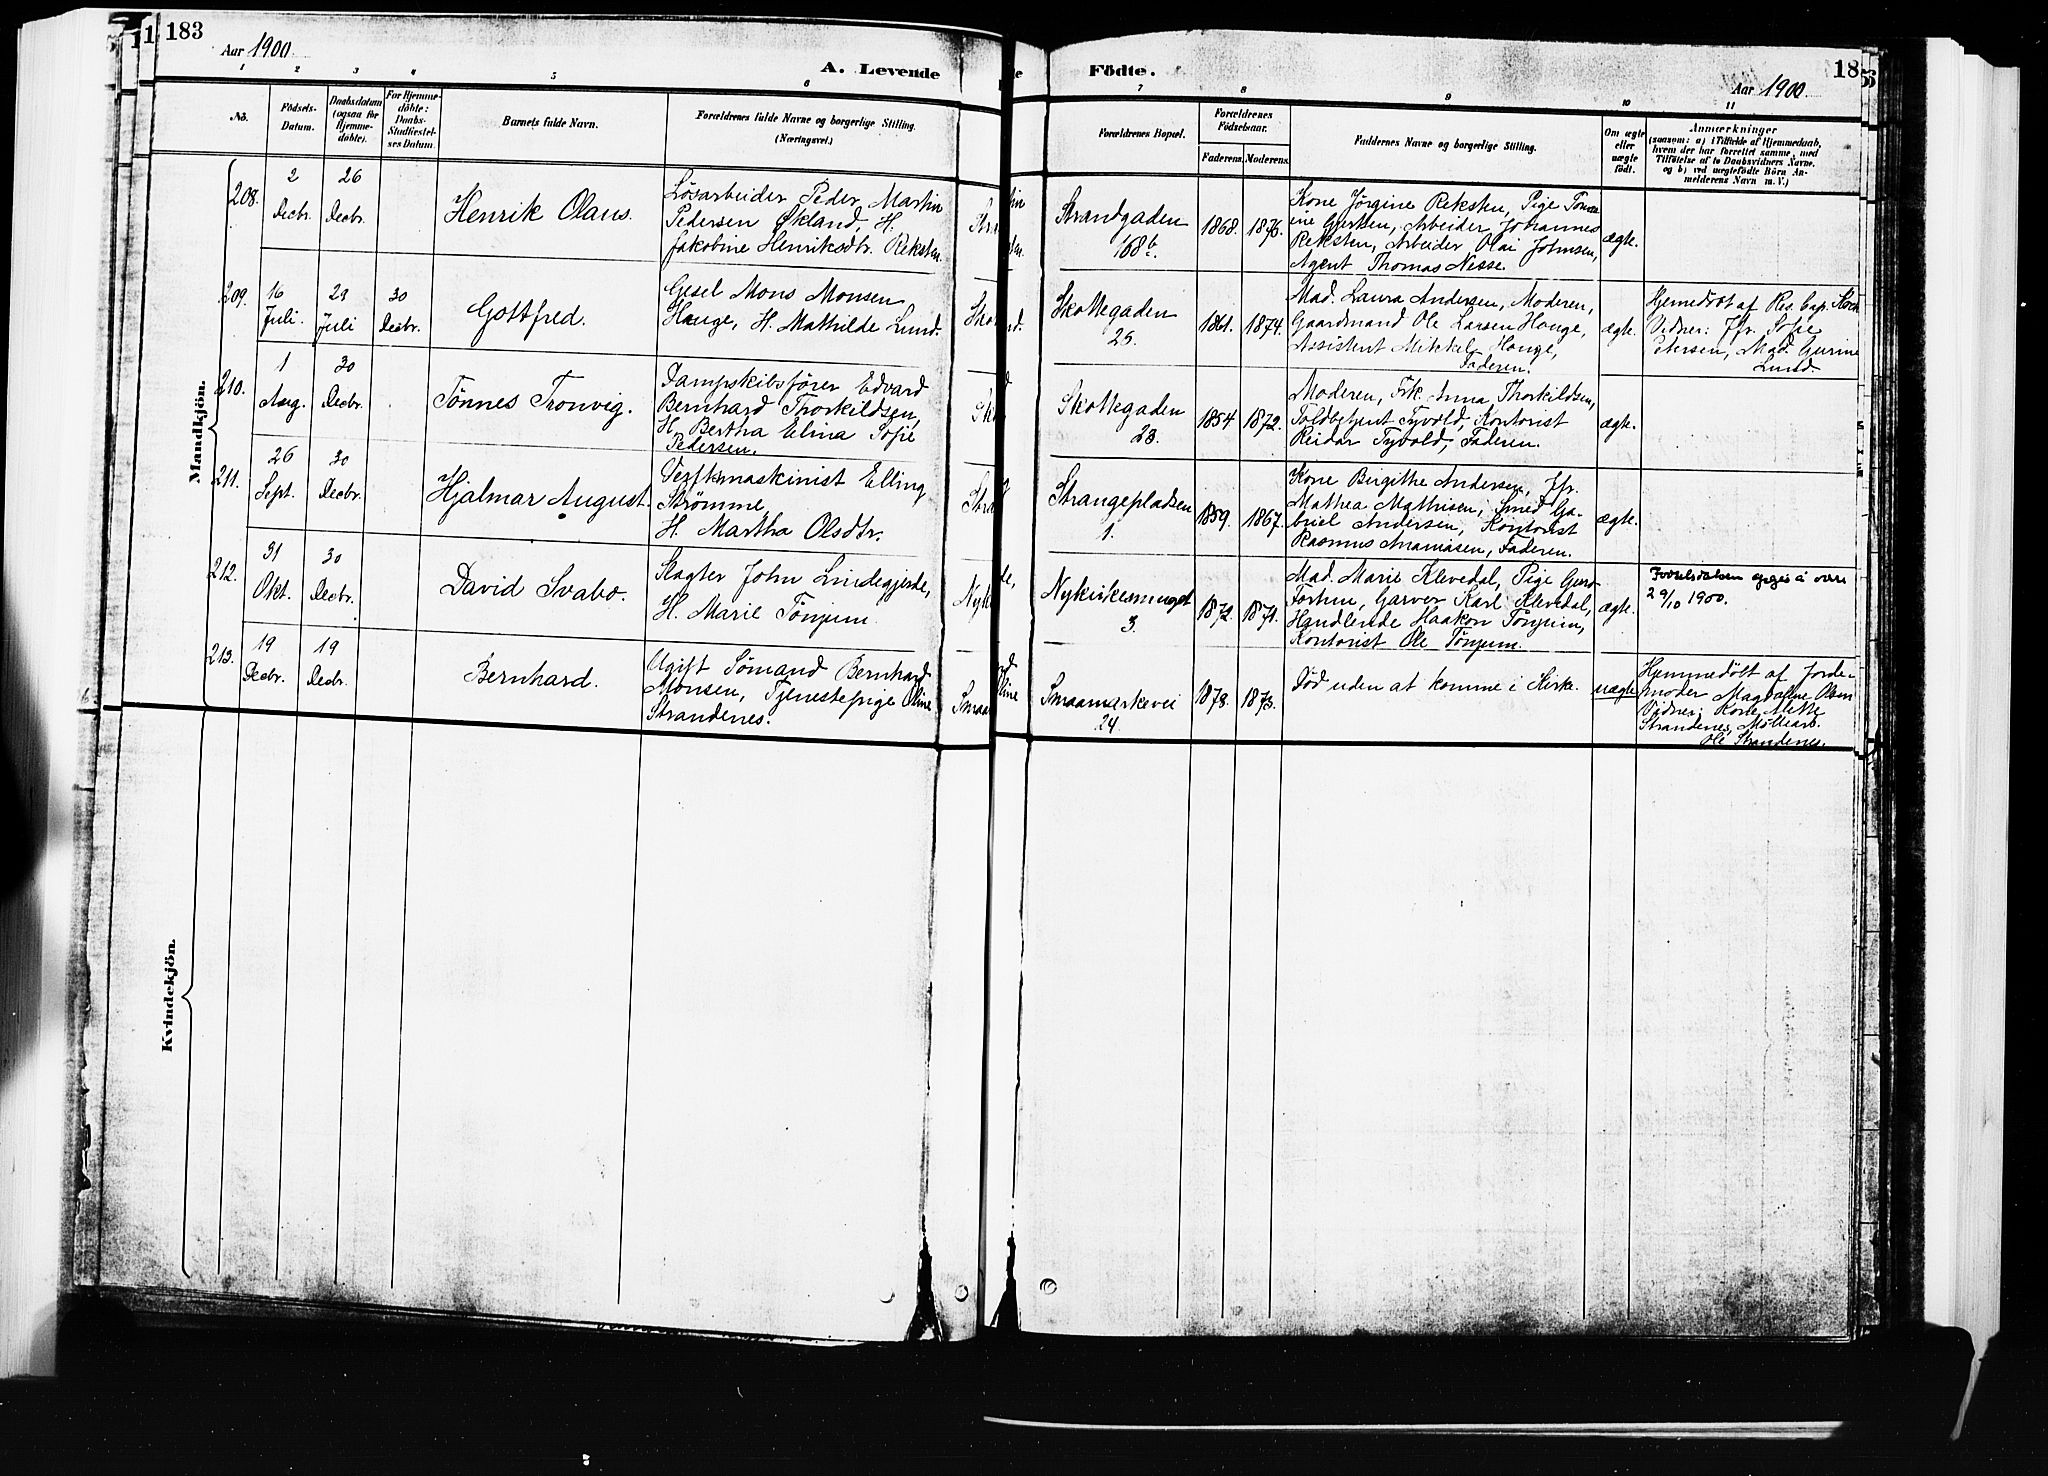 183
Aar 1900.
A. Levende
Födte.
18
Aar 1900.
1 2 3 4 5 6 7 8 9 10 11
No.
Födsels-
Datum.
Daabsdatum
(ogsaa for
Hjemme-
døbte).
For Hjemme-
döbte:
Daabs-
Stadfæstel-
ses Datum.
Barnets fulde Navn.
Forældrenes fulde Navne og borgerlige Stilling.
(Næringsvei.)
Forældrenes Bopæl.
Forældrenes
Födselsaar.
Faderens. Moderens.
Faddernes Navne og borgerlige Stilling.
Om ægte
eller
uægte
födt.
Anmærkninger
(saasom: a) i Tilfælde af Hjemmedaab,
hvem der har forrettet samme, med
Tilföielse af to Daabsvidners Navne.
og b) ved uægtefödte Börn An-
melderens Navn m. V.)
Mandkjön.
208.
2
Decbr.
26
Decbr.
Henrik Olaus.
Løsarbeider Peder Martin
Pedersen Økland, H.
Jakobine Henriksdtr. Reksten.
Strandgaden
168b.
1868. 1876.
Kone Jörgine Reksten, Pige Tomi-
ine Gjertsen, Arbeider Johannes
Reksten, Arbeider Olai Johnsen,
Agent Thomas Nesse.
ægte.
209.
16
Juli.
29
Juli
30
Decbr.
Gottfred.
Gesel Mons Monsen
Hauge, H. Mathilde Lund.
Skottegaden
25.
1861. 1874.
Mad. Laura Andersen, Moderen,
Gaardmand Ole Larsen Hauge,
Assistent Mikkel Hauge,
Faderen.
ægte.
Hjemedöbt af Res. Cap.
Vidner: Jfr. Sofie
Petersen, Mad. Gurine
Lund.
210.
1
Aug.
30
Decbr.
Tönnes Tronvig.
Dampskibsfører Edvard
Bernhard Thorkildsen,
H. Bertha Elina Sofie
Pedersen.
Skottegaden
23.
1854 1872.
Moderen, Frk. Anna Thorkildsen,
Toldbetjent Tyvold, Kontorist
Reidar Tyvold, Faderen.
ægte.
211.
26
Sept.
30
Decbr.
Hjalmar August.
Verftsmaskinist Elling
Strømme,
H. Martha Olsdtr.
Strangepladsen
1.
1859. 1867.
Kone Birgithe Andersen, Jfr.
Mathea Mathisen, Smed Ga-
briel Andersen, Kontorist
Rasmus Ananiasen, Faderen.
ægte.
212.
31
Okt.
30
Decbr.
David Svabo.
Slagter John Lindegjerde,
H. Marie Tönjum.
Nykirkesmuget
3.
1872. 1871.
Mad. Marie Klevedal, Pige
Garver Karl Klevedal,
Handlende Haakon Tönjum,
Kontorist Ole Tönjum.
ægte.
Fødselsdatoen opgis å være
29/10 1900.
213.
19
Decbr.
19
Decbr.
Bernhard.
Ugift Sömand Bernhard
Monsen, Tjenestepige Oline
Strandenes.
Smaamarkevei
24.
1878. 1873.
Död uden at komme i Kirke.
uægte
Hjemmedöbt af Jorde-
moder Magdalene Olsen
Vidner: Kone Mette
Strandenes, Möllearb.
Ole Strandenes.
Kvindekjön.